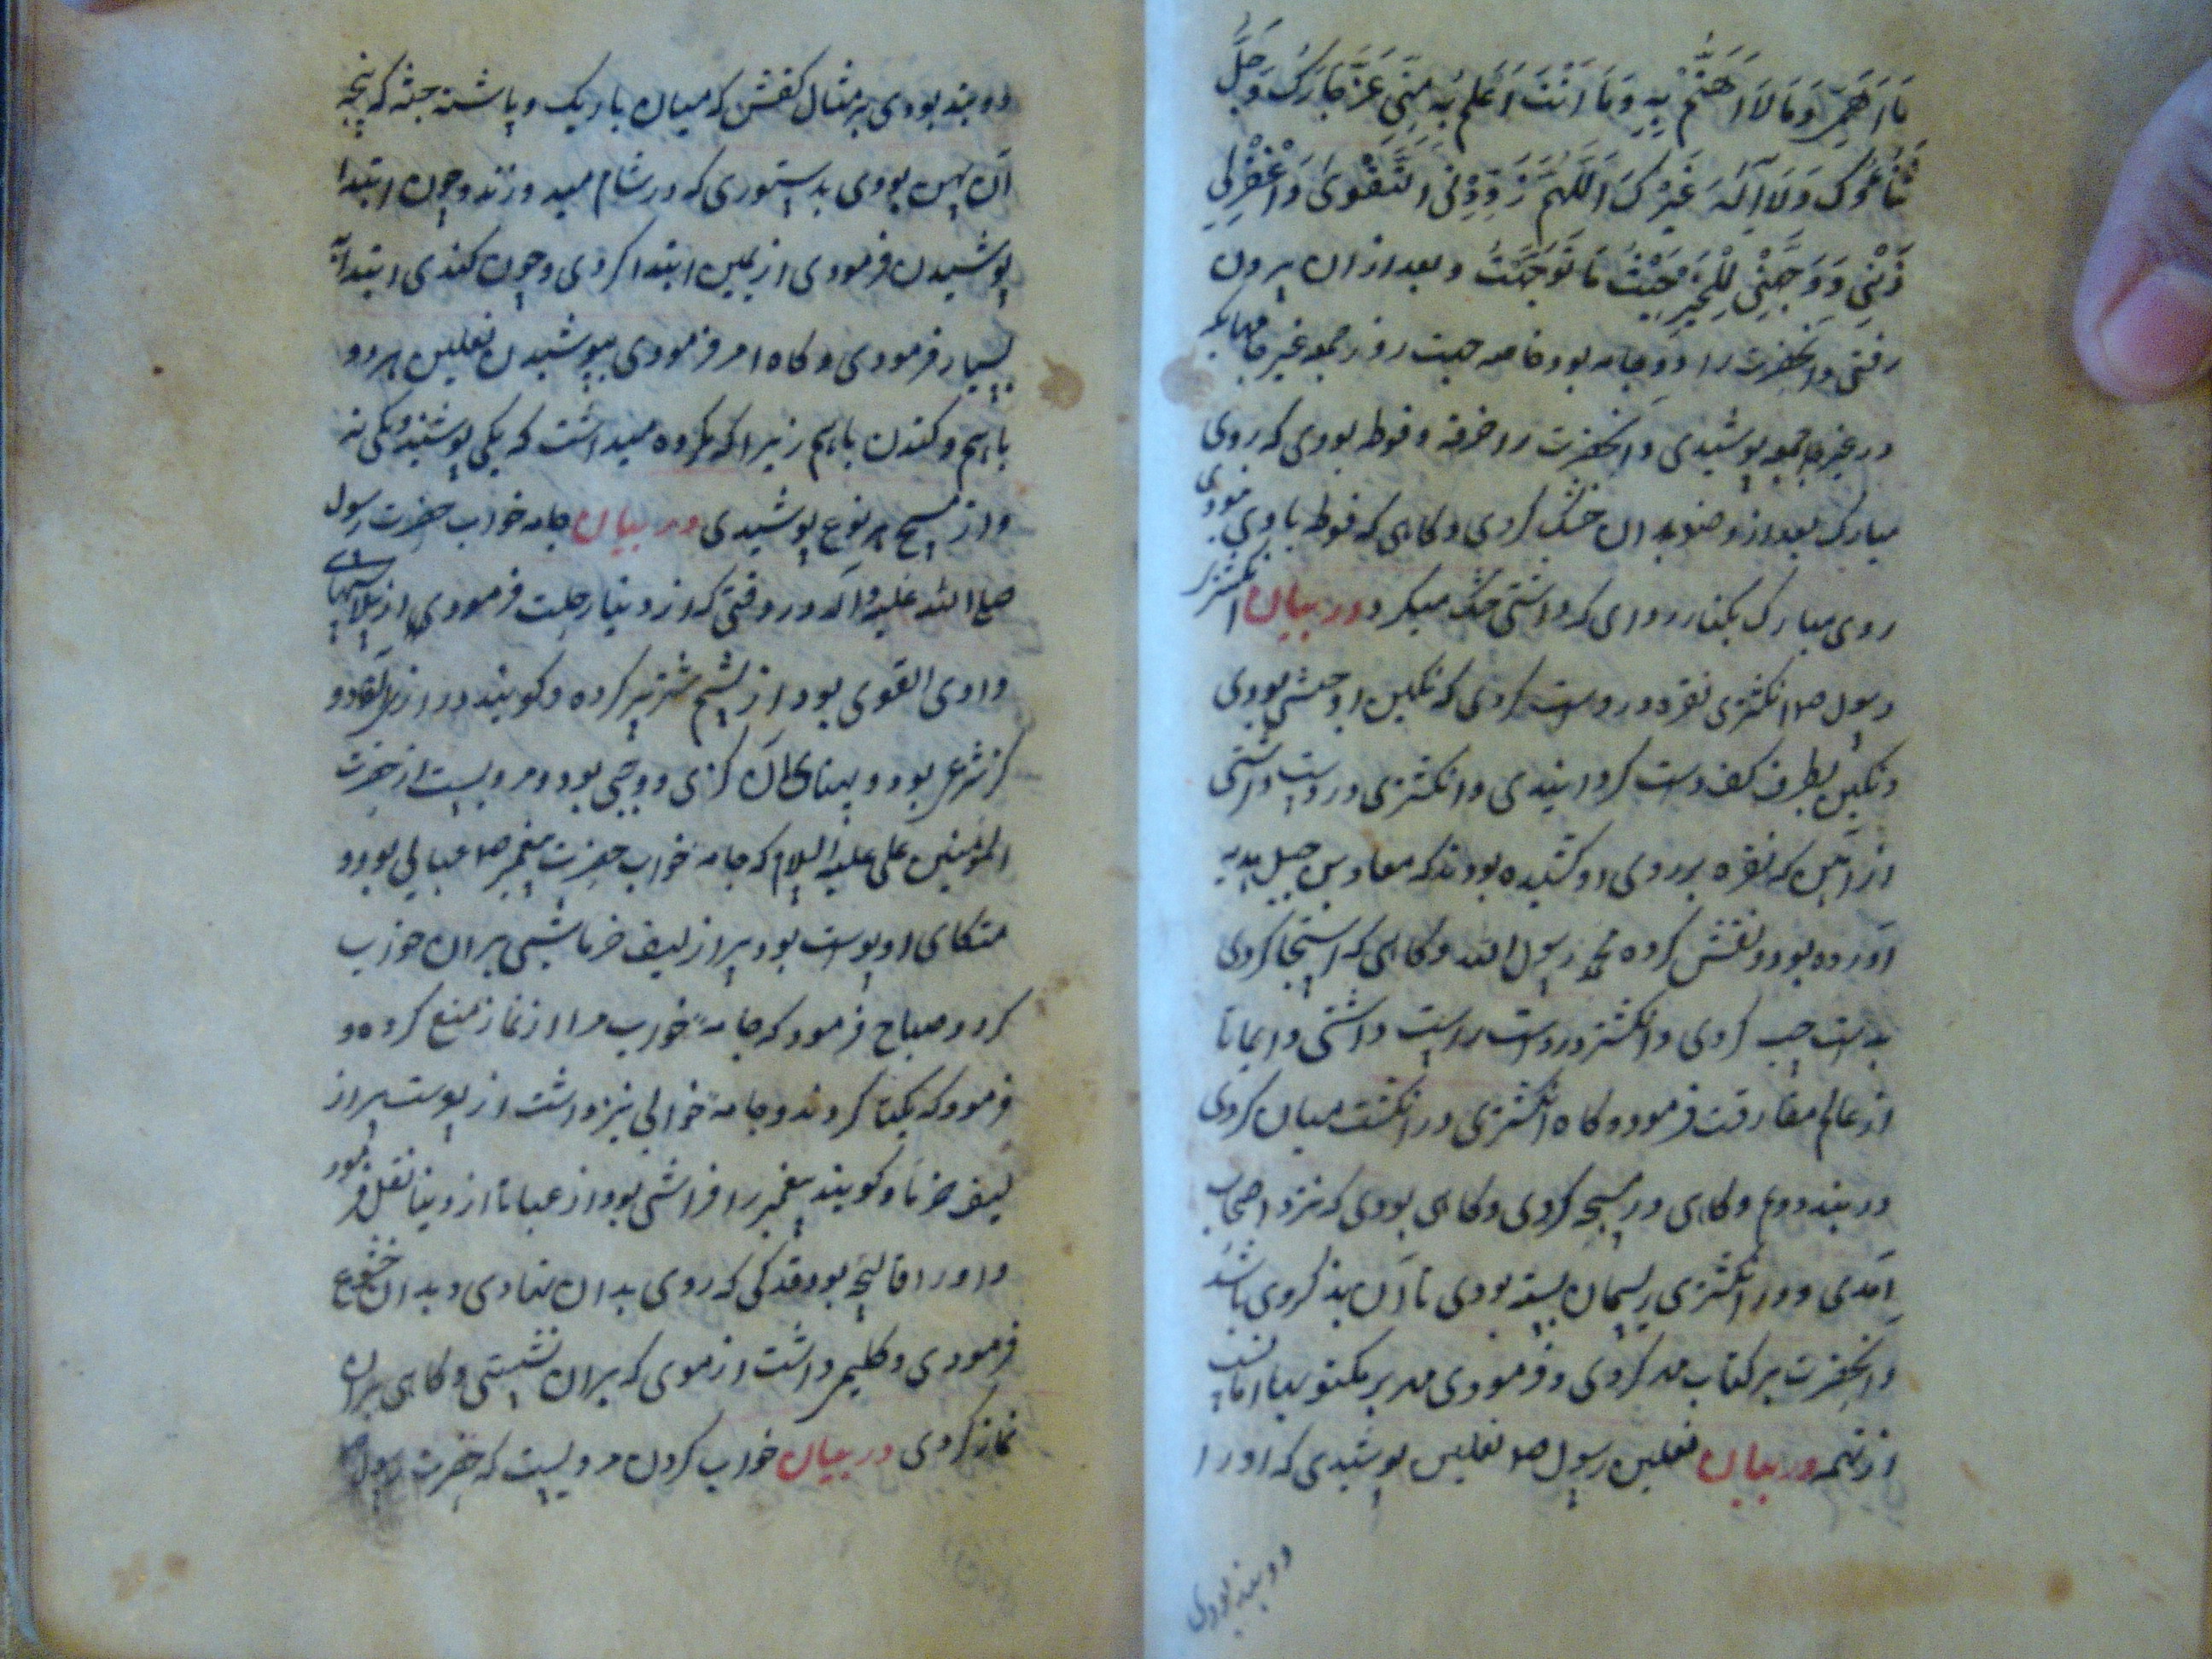 ما اهمنی و ما لا اهتم به و ما انت اعلم به منی عز جارک و جل
ثناءک و لا اله غیرک اللهم زودنی التقوی و اغفرلی
ذنبی و وجهنی للخیر حیث ما توجهت و بعد از ان بیرون
رفتی و انحضرت را دو جامه بود خاصه جهت روز جمعه غیر جامهایکه
در غیر جمعه پوشیدی و انحضرت را خرقه و فوطه بودی که روی
مبارک بعد از وضو بدان خشک کردی و کاهی که فوطه با وی نبودی
روی مبارک بکنار ردای که داشتی خشک میکرد در بیان انکشتر
رسول ص انکشتری نقره در دست کردی که نکین او حبشی بودی
و نکین بطرف کف دست کردانیدی و انکشتری در دست داشتی
از آهن که نقره بر روی او کشیده بودند که معاد بن جبل هدیه
آورده بود و نقش کرده محمد رسول الله و کاهی که استنجا کردی
بدست چپ کردی و انکشتر در دست راست داشتی و
از عالم مفارقت فرمود و کاه انکشتری در انکشت میان کردی
در بند دوم و کاهی در مسبحه کردی و کاهی بودی که نزد اصحاب
آمدی و در انکشتری ریسمان بسته بودی تا آن یذکروی باشد
و انحضرت بر کتاب مهر کردی و فرمودی مهر بر مکتوب
از تهمه در بیان نعلین رسول ص نعلین پوشیدی که او را
دو بند بودی
دو بند بودی بر مثال کفش که میان باریک و پاشنه جثه که پنجه
آن پهن بودی بدستوری که در شام میدوزند و چون ابتدا
پوشیدن فرمودی از یمین ابتدا کردی و چون کندی ابتدا
بیسار فرمودی و کاه امر فرمودی بپوشیدن نعلین هردو
باهم و کندن باهم زیرا که مکروه میداشت که یکی پوشند و یکی نه
و از مسح هر نوع پوشیدی در بیان جامه خواب حضرت رسول
صلی الله علیه و اله در وقتی که از دنیا رحلت فرمودی از پلاسهای
وادی القوی بود از پشم شتر پر کرده و کویند درازی او دو
کز شرعی بود و پهنای آن کزی و وجبی بود و مرویست از حضرت
المؤمنین علی علیه السلام که جامه خواب حضرت پیغمبر ص عبایی بود و
متکای او پوست بود پر از لیف خرما شبی بر ان خواب
کرد و صباح فرمود که جامه خواب مرا از نماز منع کرده و
فرمود که یکتا کردند و جامه خوابی نیز داشت از پوست پر از
لیف خرما و کویند پیغمبر را فراشی بود از عبا تا از دنیا نقل فرمود
و او را قالیچه بود فدکی که روی بدان نهادی و بدان خشوع
فرمودی و کلیم داشت از موی که بران نشستی و کاهی بران
نماز کردی در بیان خواب کردن مرویست که حضرت رسول